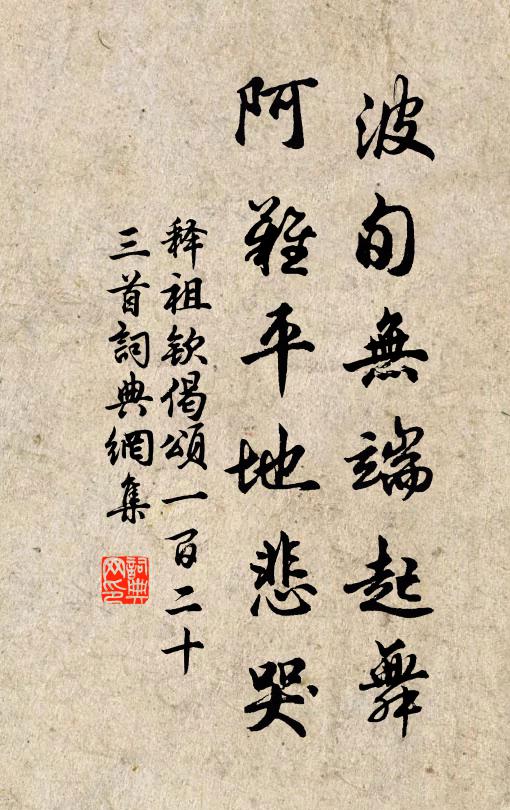 波旬無端起舞
阿難平地悲哭
释祖钦偈頌一百二十
三首詞典網集
詞典
网印